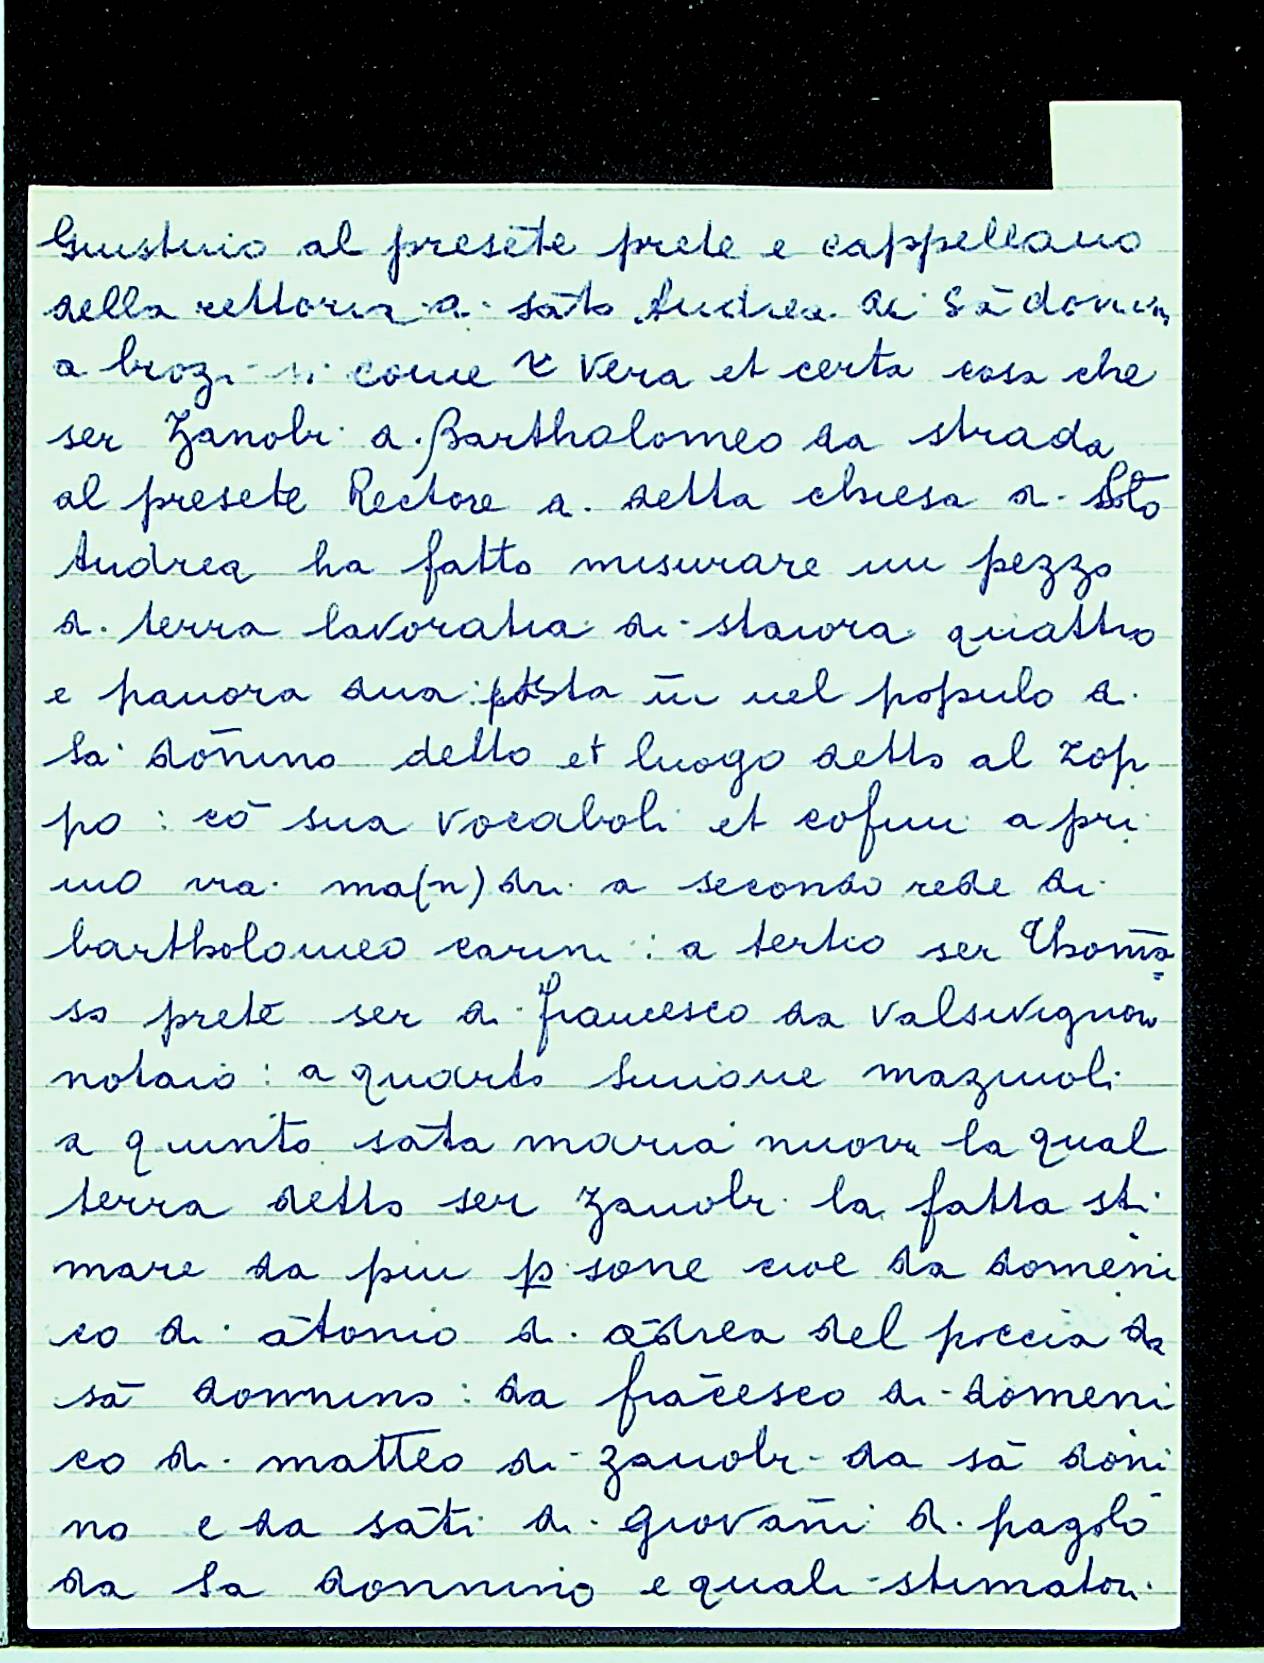 Giustino al presēte prete e cappellano
della rettoria d. sāto Andrea di Sā donin
a brozi si come è vera et certa cosa che
ser Zanobi d. Bartholomeo da strada
al presēte Rectore d. detta chiesa d. Sto
Andrea ha fatto misurare un pezzo
d. terra lavoratia di staiora quattro
e panora dua: posta in nel populo d.
Sā don̄ino detto et luogo detto al zop
po: cō sua vocaboli et cōfini a pri
mo via ma(n)di a secondo rede di
bartholomeo carini: a tertio ser Thomā
so prete ser di francesco da valsivignon
notaio: a quarto Simone mazinoli
a quinto sāta maria nuova la qual
terra detto ser Zanobi la fatta sti
mare da piu p sone cioe da domeni
co di ātonio di ādrea del poccia da
sā donnino: da frācesco di domeni
co di matteo di zanobi da sā doni
no e da sāti di giovan̄i di pagolo
da Sa donnino e quali stimatori